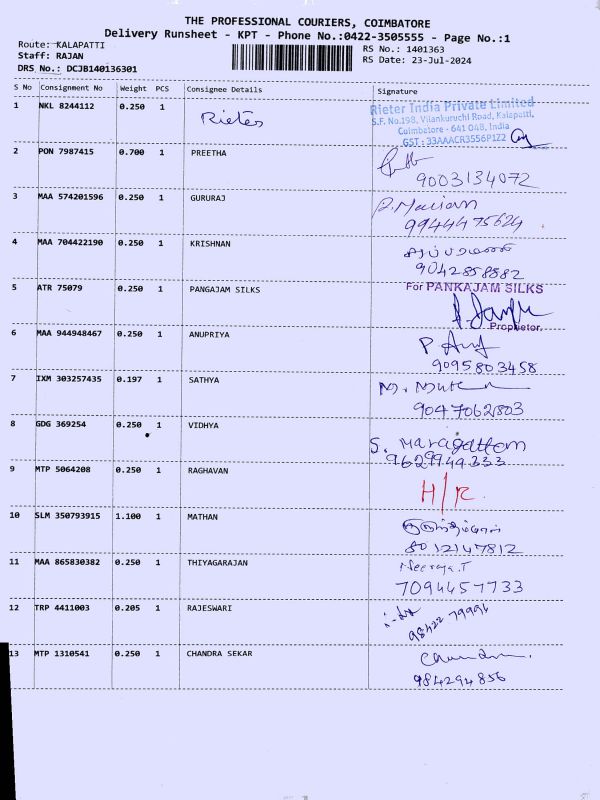 THE PROFESSIONAL COURIERS, COIMBATORE
Delivery Runsheet - KPT - Phone No.:0422-3505555 - Page No.:1
Route: KALAPATTI
Staff: RAJAN
DRS No.: DCJB140136301
RS No.: 1401363
RS Date: 23-Jul-2024
S No Consignment No Weight PCS Consignee Details Signature
1 NKL 8244112 0.250 1 Rieter
Rieter India Private Limited
S.F. No.198, Vilankuruchi Road, Kalapatti,
Coimbatore - 641 048, India
GST : 33AAACR3556P1Z2
2 PON 7987415 0.700 1 PREETHA
9003134072
3 MAA 574201596 0.250 1 GURURAJ
9944475624
4 MAA 704422190 0.250 1 KRISHNAN
9042858582
5 ATR 75079 0.250 1 PANGAJAM SILKS For PANKAJAM SILKS
Proprietor
6 MAA 944948467 0.250 1 ANUPRIYA
9095803458
7 IXM 303257435 0.197 1 SATHYA
9047062803
8 GDG 369254 0.250 1 VIDHYA
S. Maragattem
9629949333
9 MTP 5064208 0.250 1 RAGHAVAN
H/R
10 SLM 350793915 1.100 1 MATHAN
8012147812
11 MAA 865830382 0.250 1 THIYAGARAJAN Neeraja.T
7094457733
12 TRP 4411003 0.205 1 RAJESWARI
98422 79996
13 MTP 1310541 0.250 1 CHANDRA SEKAR
984294856